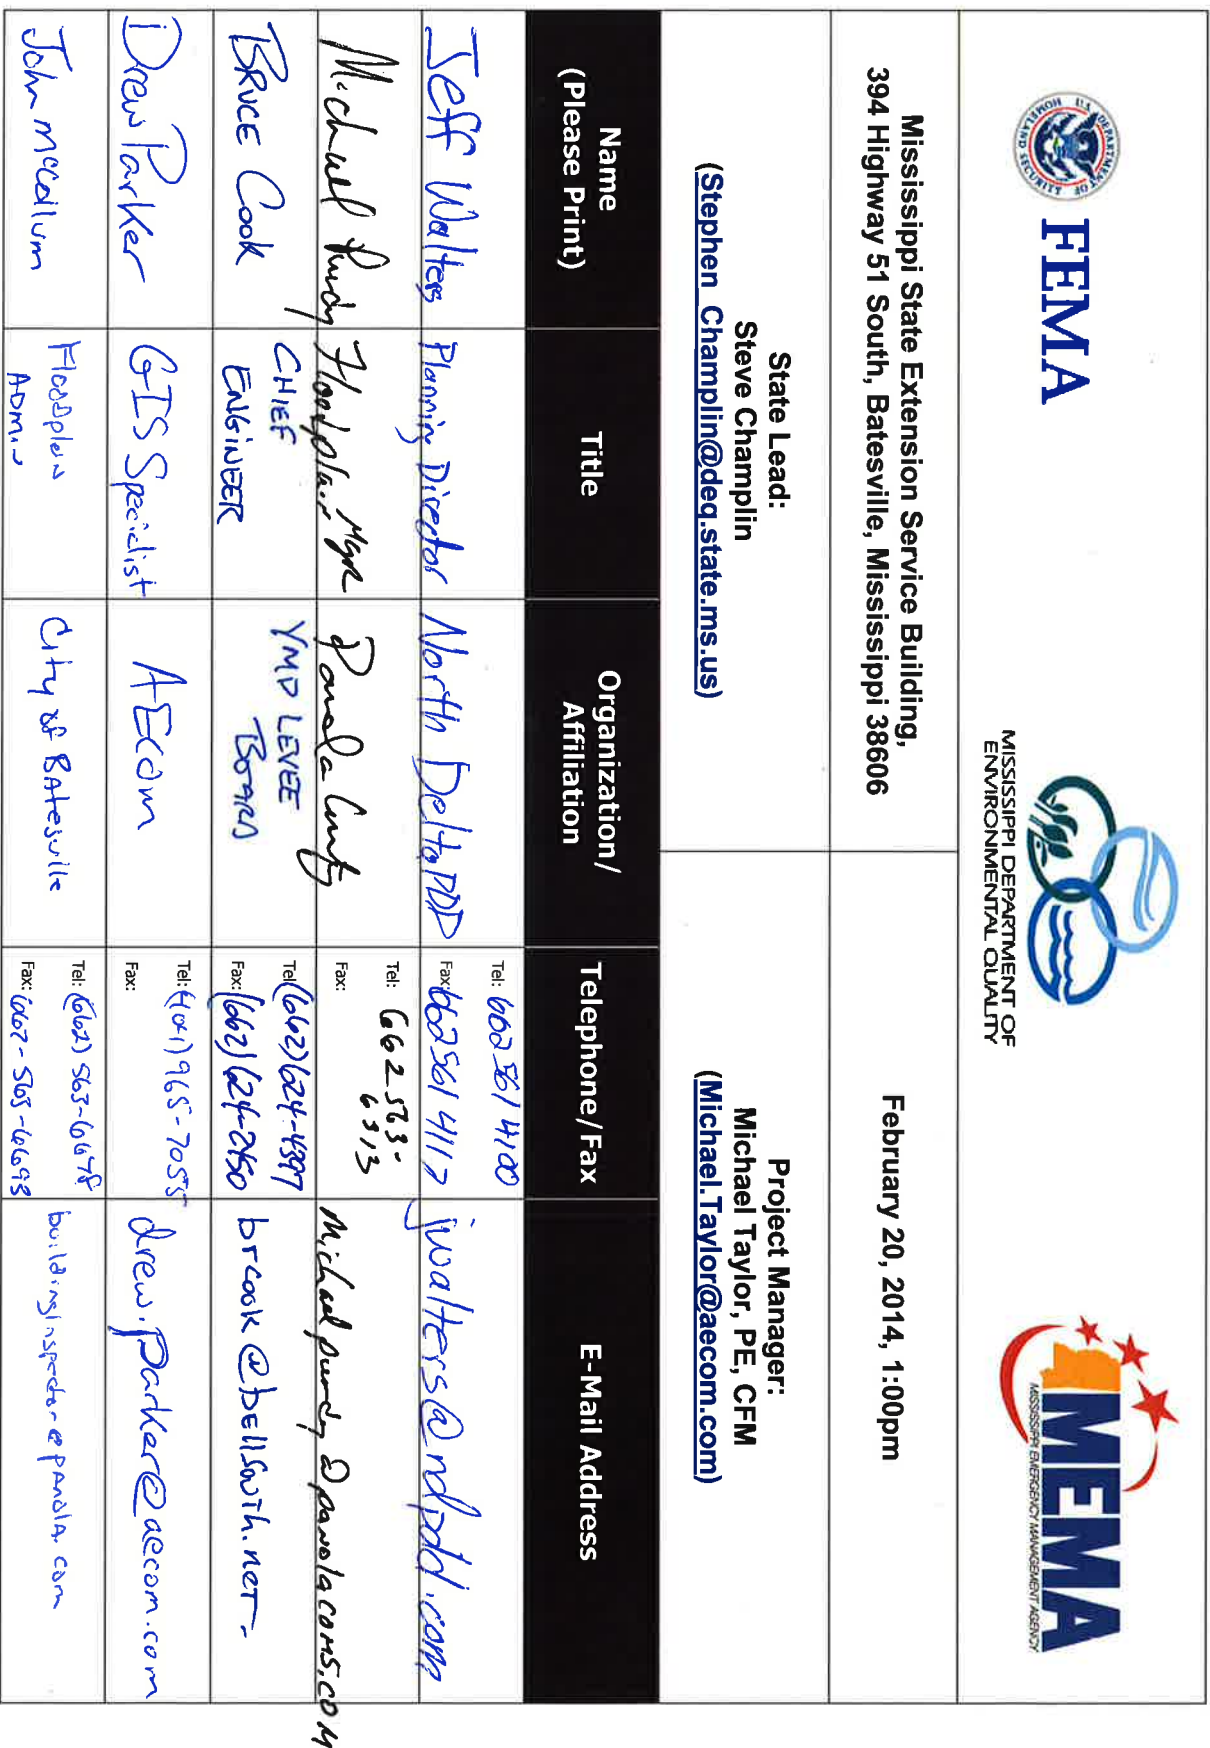 U.S. DEPARTMENT OF HOMELAND SECURITY
FEMA
MISSISSIPPI DEPARTMENT OF
ENVIRONMENTAL QUALITY
MEMA
MISSISSIPPI EMERGENCY MANAGEMENT AGENCY
Mississippi State Extension Service Building,
394 Highway 51 South, Batesville, Mississippi 38606
February 20, 2014, 1:00pm
State Lead:
Steve Champlin
(Stephen_Champlin@deq.state.ms.us)
Project Manager:
Michael Taylor, PE, CFM
(Michael.Taylor@aecom.com)
Name
(Please Print)
Title
Organization/
Affiliation
Telephone/Fax
E-Mail Address
Jeff Walters
Planning Director
North Delta PDD
Tel: 662 561 4100
Fax: 662 561 4112
jwalters@ndpdd.com
Michael Purdy
Floodplain Mgr
Panola County
Tel: 662 563-
6313
Fax:
Michaelpurdy@panolacoms.com
BRUCE Cook
CHIEF
ENGINEER
YMD LEVEE
BOARD
Tel: (662) 624-4397
Fax: (662) 624-2450
brcook@bellsouth.net
Drew Parker
GIS Specialist
AECOM
Tel: (601) 965-7055
Fax:
drew.parker@aecom.com
John McCollum
Floodplain
Admin
City of Batesville
Tel: (662) 563-6678
Fax: 662-563-6693
buildinginspector@panola.com